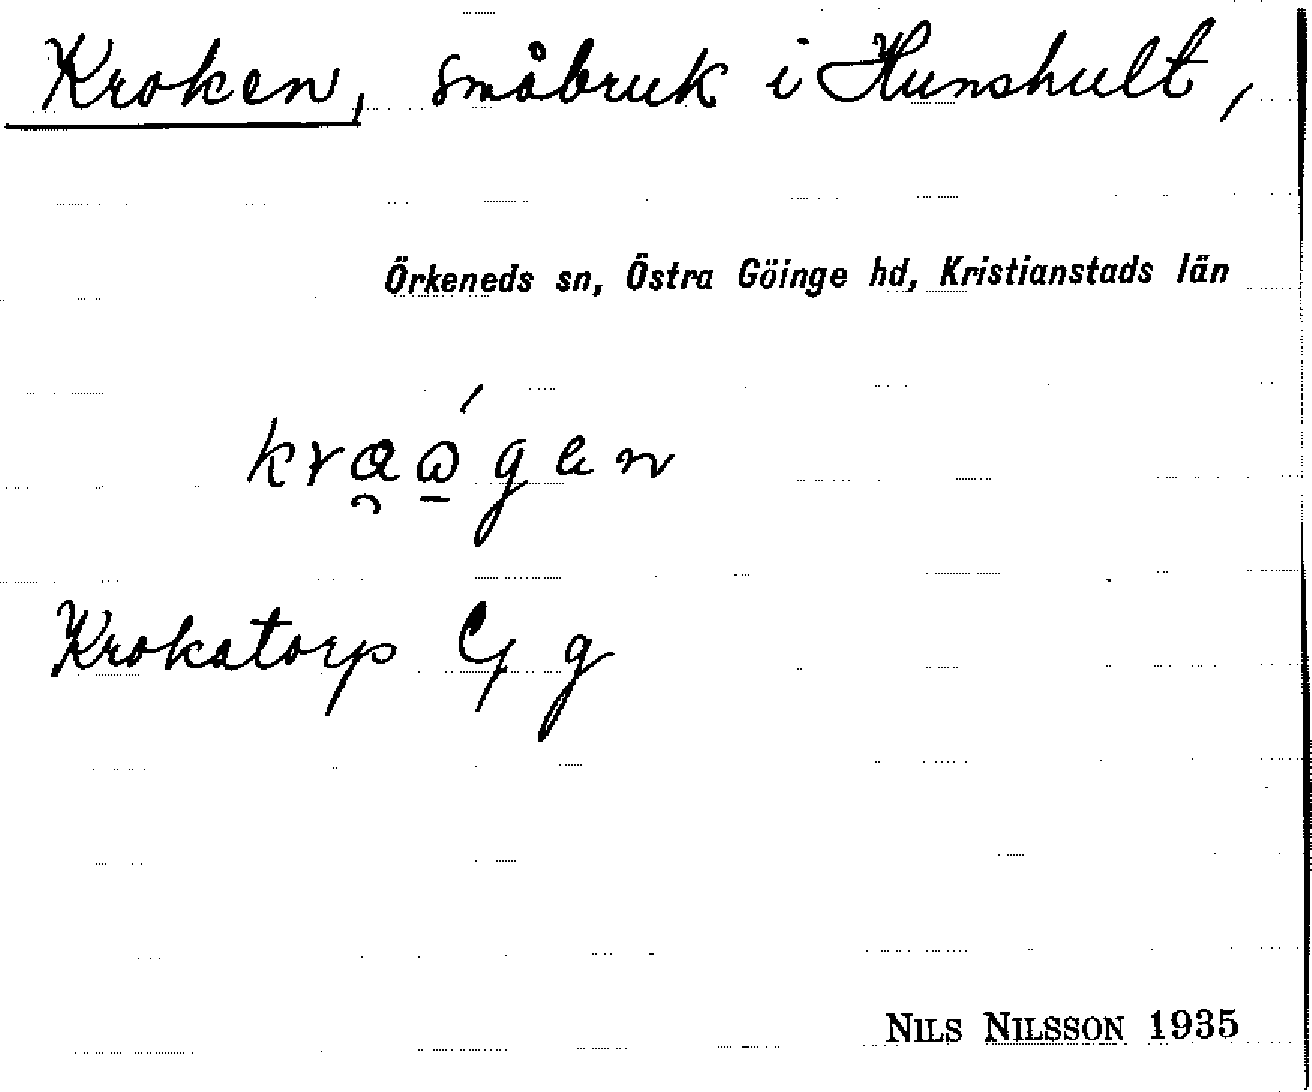 Kroken, småbruk i Hunshult,
Örkeneds sn, Östra Göinge hd, Kristianstads län
Krokatorp Cf g
NILS NILSSON 1935